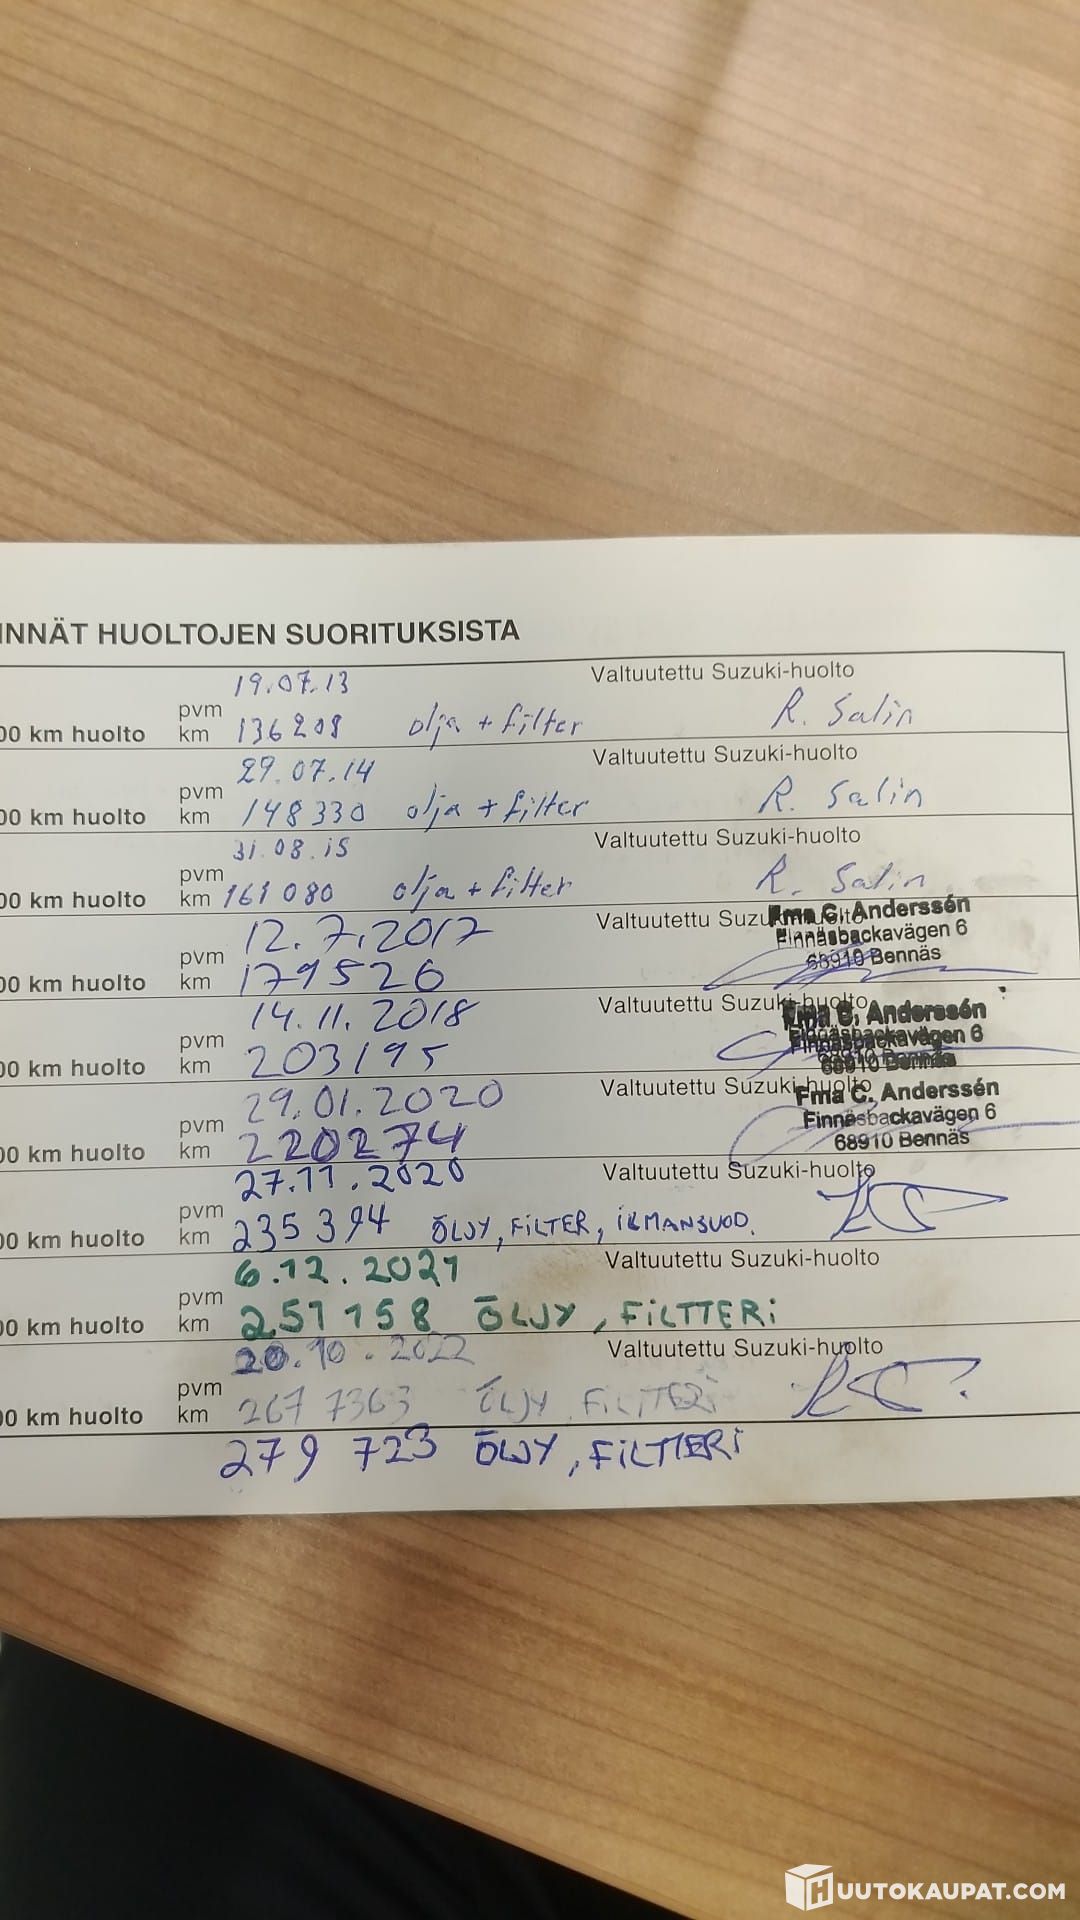 INNÄT HUOLTOJEN SUORITUKSISTA
19.07.13 Valtuutettu Suzuki-huolto
pvm
00 km huolto km 136208 olja + filter R. Salin
29.07.14 Valtuutettu Suzuki-huolto
pvm
00 km huolto km 148330 olja + filter R. Salin
31.08.15 Valtuutettu Suzuki-huolto
pvm
00 km huolto km 161080 olja + filter R. Salin
12.7.2017 Valtuutettu Suzuki-huolto
Fma C. Anderssén
pvm Finnäsbackavägen 6
00 km huolto km 179526 68910 Bennäs
14.11.2018 Valtuutettu Suzuki-huolto
Fma C. Anderssén
pvm Finnäsbackavägen 6
00 km huolto km 203195 68910 Bennäs
29.01.2020 Valtuutettu Suzuki-huolto
Fma C. Anderssén
pvm Finnäsbackavägen 6
00 km huolto km 220274 68910 Bennäs
27.11.2020 Valtuutettu Suzuki-huolto
pvm
00 km huolto km 235 394 ÖLJY, FILTER, ILMANSUOD.
6.12.2021 Valtuutettu Suzuki-huolto
pvm
00 km huolto km 251 158 ÖLJY, FILTTERI
20.10.2022 Valtuutettu Suzuki-huolto
pvm
00 km huolto km 267 7363 ÖLJY, FILTTERI
279 723 ÖLJY, FILTTERI
HUUTOKAUPAT.COM